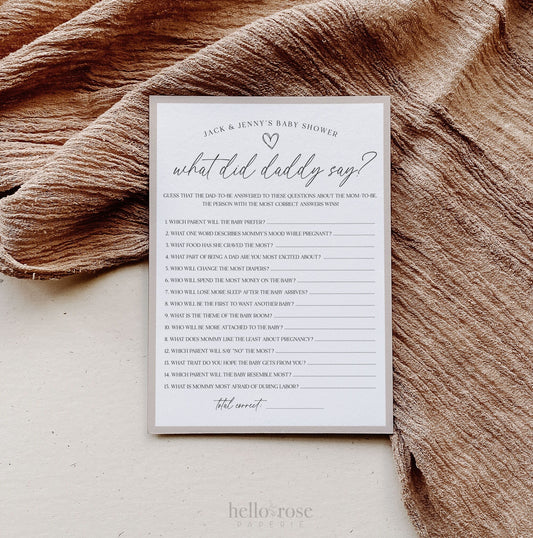 JACK & JENNY'S BABY SHOWER
what did daddy say?
GUESS THAT THE DAD-TO-BE ANSWERED TO THESE QUESTIONS ABOUT THE MOM-TO-BE.
THE PERSON WITH THE MOST CORRECT ANSWERS WINS!
1. WHICH PARENT WILL THE BABY PREFER?
2. WHAT ONE WORD DESCRIBES MOMMY'S MOOD WHILE PREGNANT?
3. WHAT FOOD HAS SHE CRAVED THE MOST?
4. WHAT PART OF BEING A DAD ARE YOU MOST EXCITED ABOUT?
5. WHO WILL CHANGE THE MOST DIAPERS?
6. WHO WILL SPEND THE MOST MONEY ON THE BABY?
7. WHO WILL LOSE MORE SLEEP AFTER THE BABY ARRIVES?
8. WHO WILL BE THE FIRST TO WANT ANOTHER BABY?
9. WHAT IS THE THEME OF THE BABY ROOM?
10. WHO WILL BE MORE ATTACHED TO THE BABY?
8. WHAT DOES MOMMY LIKE THE LEAST ABOUT PREGNANCY?
12. WHICH PARENT WILL SAY "NO" THE MOST?
13. WHAT TRAIT DO YOU HOPE THE BABY GETS FROM YOU?
14. WHICH PARENT WILL THE BABY RESEMBLE MOST?
15. WHAT IS MOMMY MOST AFRAID OF DURING LABOR?
total correct:
hello rose
PAPERIE